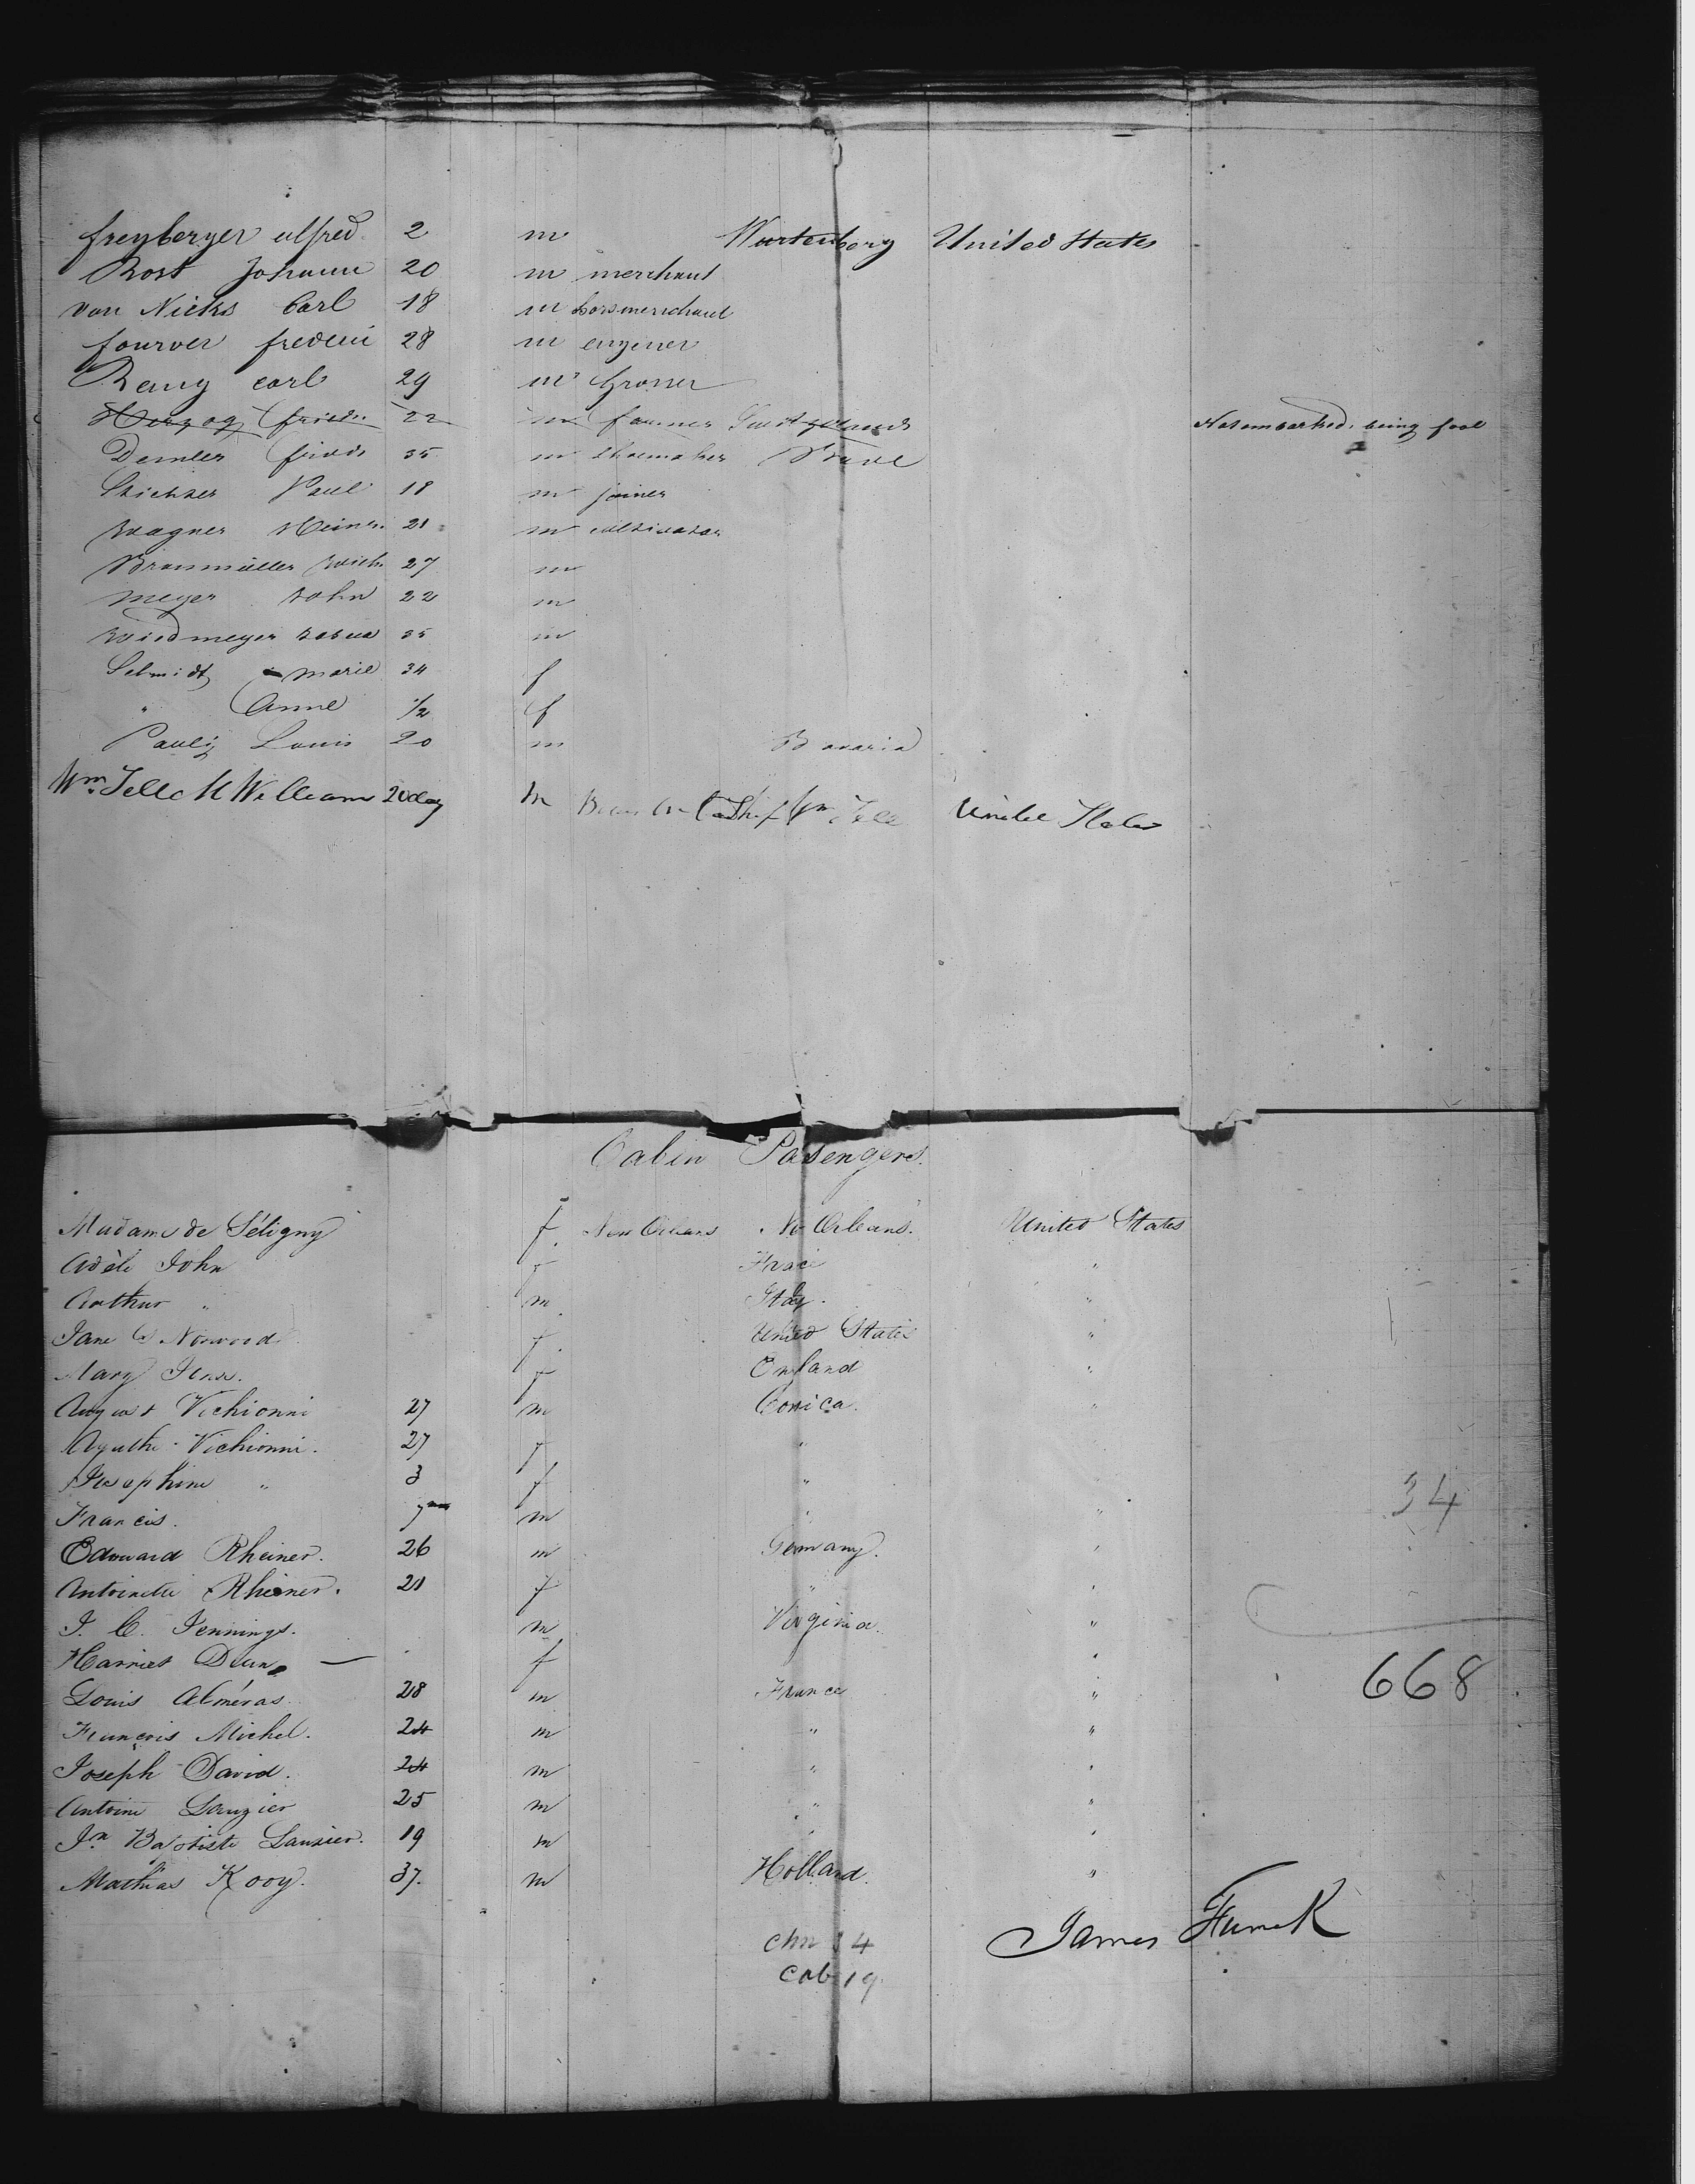 freyberger alfred 2 m Wurtenberg United States
Rost Johann 20 m merchant
von Nicks Carl 18 m horsmerchand
fourver frederic 28 m enginer
Remy carl 29 m Grosser
Herzog friedr. 22 m farmer Not embarked, being fool
Demler friedr 35 m shoemaker
Stichter Paul 18 m joiner
Wagner Heinr. 21 m cultivator
Braumüller 27 m
Meyer John 22 m
Wiedmeyer 35 m
Schmidt marie 34 f
" Anne 1/2 f
Pauly Louis 20 m Bavaria
Wm. Tell William 20 day m Born on Ship Wm Tell United States
Cabin Pasengers.
Madame de Séligny f. New Orleans N. Orleans. United States
Adèle John f France "
Arthur " m Italy. "
Jane Norwood f. United States "
Mary f England "
August Vichionni 27 m Corsica. "
Agathe Vichionni. 27 f " "
Josephine " 3 f " "
Francis. m " " 34
Edouard Rheiner. 26 m Germany. "
Antoinette Rheiner. 21 f " "
J. C. Jennings. m Virginia. "
Harriet f " 668
Louis Alméras 28 m France "
François Michel. 24 m " "
Joseph David. 24 m " "
Antoine Lauzier 25 m " "
Jn Baptiste Lauzier. 19 m " "
Mathias Kooy. 37. m Holland. "
James Funck
Cab 19.